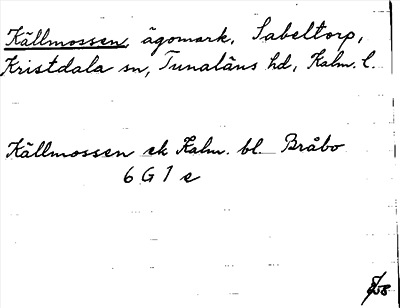 Källmossen, ägomark, Sabeltorp,
Kristdala sn, Tunaläns hd, Kalm. l.
Källmossen ek Kalm. bl. Bråbo
6 G 1 e